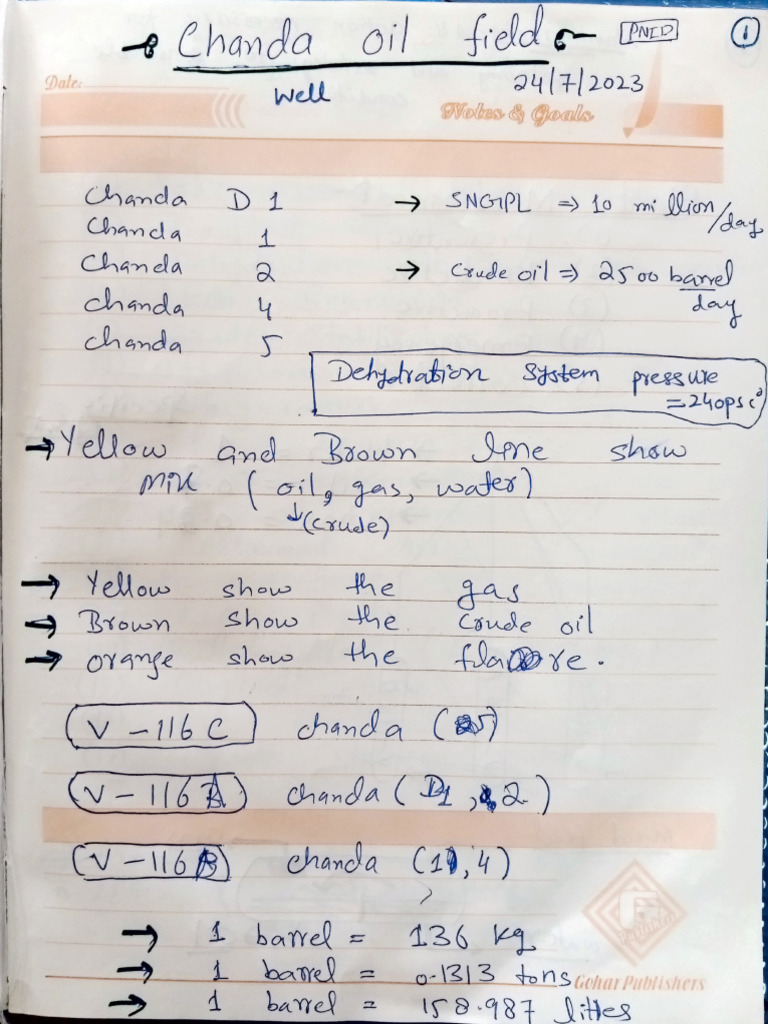 Chanda oil field PNID 1
Date: Well 24/7/2023
Notes & Goals
Chanda D 1 → SNGPL ⇒ 10 million/day
Chanda 1
Chanda 2 → Crude oil ⇒ 2500 barrel/day
Chanda 4
Chanda 5
Dehydration System pressure
= 240psi
→ Yellow and Brown line show
mix (oil, gas, water)
↓(crude)
→ Yellow show the gas
→ Brown show the Crude oil
→ orange show the flare.
V-116 C chanda (5)
V-116 A chanda (D1, 2)
V-116 B chanda (1, 4)
→ 1 barrel = 136 kg
→ 1 barrel = 0.1313 tons
Gohar Publishers
→ 1 barrel = 158.987 litres